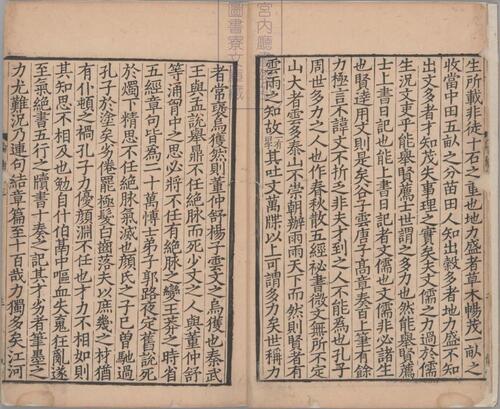 生所載非徒十石之重也地力盛者草木暢茂一畝之
收當中田五畝之分苗田人知出穀多者地力盛不知
出文多者才知茂失事理之實矣夫文儒之力過於儒
生況文吏乎能舉賢薦士世謂之多力也然能舉賢薦
士上書日記也能上書日記者文儒也文儒非必諸生
也賢達用文則是矣谷子雲唐子高章奏百上筆有餘
力極言不諱文不折乏非夫才到之人不能為也孔子
周世多力之人也作春秋散五經秘書微文無所不定
山大者雲多泰山不崇朝辦雨雨天下夫然則賢者有
雲雨之知故其吐文萬牒以上可謂多力矣世稱力
者常褒烏獲然則董仲舒楊子雲文之烏獲也秦武
王與孟說舉鼎不任絕脉而死少文之人與董仲舒
等涌胷中之思必將不任有絕脉之變王莽之時省
五經章句皆為二十萬博士弟子郭路夜定舊說死
於燭下精思不任絕脉氣滅也顏氏之子已曾馳過
孔子於塗矣劣倦罷極髮白齒落夫以庶幾之材猶
有仆頓之禍孔子力優顏淵不任也才力不相如則
其知思不相及也勉自什伯鬲中嘔血失䰟狂亂遂
至氣絕書五行之牘書十奏之記其才劣者筆墨之
力尤難況乃連句結章篇至十百哉力獨多矣江河
宮内廳
圖書寮文庫